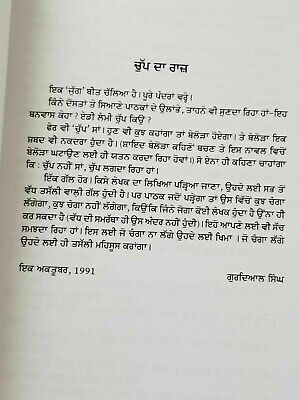 ਚੁੱਪ ਦਾ ਰਾਜ਼
ਇਕ 'ਜੁੱਗ' ਬੀਤ ਚੱਲਿਆ ਹੈ। ਪੂਰੇ ਪੰਦਰਾਂ ਵਰ੍ਹੇ।
ਕਿੰਨੇ ਦੋਸਤਾਂ ਤੇ ਸਿਆਣੇ ਪਾਠਕਾਂ ਦੇ ਉਲਾਂਭੇ, ਤਾਹਨੇ ਵੀ ਸੁਣਦਾ ਰਿਹਾ ਹਾਂ–ਇਹ
ਬਨਵਾਸ ਕੇਹਾ ? ਏਡੀ ਲੰਮੀ ਚੁੱਪ ਕਿਉਂ ?
ਫੇਰ ਵੀ 'ਚੁੱਪ' ਸਾਂ। ਹੁਣ ਵੀ ਕੁਝ ਕਹਾਂਗਾ ਤਾਂ ਬੇਲੋੜਾ ਹੋਏਗਾ। ਤੇ ਬੇਲੋੜਾ ਇਕ
ਸ਼ਬਦ ਵੀ ਨਕਦਰਾ ਹੁੰਦਾ ਹੈ। (ਸ਼ਾਇਦ ਬੇਲੋੜਾ ਕਹਿਣੋਂ ਬਚਣ ਤੇ ਇਸ ਨਾਵਲ ਵਿਚੋਂ
ਬੇਲੋੜਾ ਘਟਾਉਣ ਲਈ ਹੀ ਯਤਨ ਕਰਦਾ ਰਿਹਾ ਹੋਵਾਂ।) ਸੋ ਏਨਾ ਹੀ ਕਹਿਣਾ ਚਾਹਾਂਗਾ
ਕਿ : ਚੁੱਪ ਨਹੀਂ ਸਾਂ, ਚੁੱਪ ਲਗਦਾ ਰਿਹਾ ਹਾਂ।
ਇੱਕ ਗੱਲ ਹੋਰ। ਕਿਸੇ ਲੇਖਕ ਦਾ ਲਿਖਿਆ ਪੜ੍ਹਿਆ ਜਾਣਾ, ਉਹਦੇ ਲਈ ਸਭ ਤੋਂ
ਵੱਧ ਤਸੱਲੀ ਵਾਲੀ ਗੱਲ ਹੁੰਦੀ ਹੈ। ਪਰ ਪਾਠਕ ਜਦੋਂ ਪੜ੍ਹੇਗਾ ਤਾਂ ਉਸ ਵਿੱਚੋਂ ਕੁਝ ਚੰਗਾ
ਲੱਗੇਗਾ, ਕੁਝ ਚੰਗਾ ਨਹੀਂ ਲੱਗੇਗਾ, ਕਿਉਂਕਿ ਜਿੰਨੇ ਜੋਗਾ ਕੋਈ ਲੇਖਕ ਹੁੰਦਾ ਹੈ ਉੱਨਾ ਹੀ
ਕਰ ਸਕਦਾ ਹੈ। (ਵੱਧ ਦੀ ਸਮਰੱਥਾ ਹੀ ਉਸ ਅੰਦਰ ਨਹੀਂ ਹੁੰਦੀ)। ਇਹੋ ਆਪਣੇ ਲਈ ਵੀ ਸੱਚ
ਸਮਝਦਾ ਰਿਹਾ ਹਾਂ। ਇਸ ਲਈ ਜੋ ਚੰਗਾ ਨਾ ਲੱਗੇ ਉਹਦੇ ਲਈ ਖਿਮਾ । ਜੋ ਚੰਗਾ ਲੱਗੇ
ਉਹਦੇ ਲਈ ਹੀ ਤਸੱਲੀ ਮਹਿਸੂਸ ਕਰਾਂਗਾ।
ਇਕ ਅਕਤੂਬਰ, 1991
ਗੁਰਦਿਆਲ ਸਿੰਘ